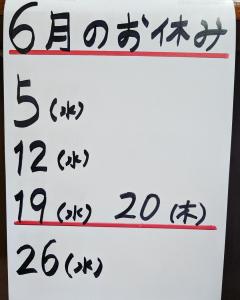 6月のお休み
5(水)
12(水)
19(水) 20(木)
26(水)